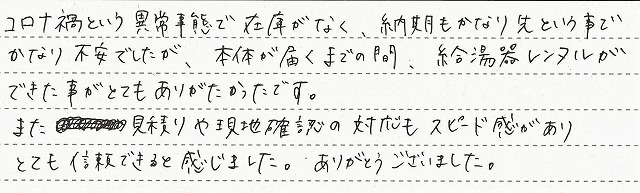 コロナ禍という異常事態で在庫がなく、納期もかなり先という事で
かなり不安でしたが、本体が届くまでの間、給湯器レンタルが
できた事がとてもありがたかったです。
また 見積りや現地確認の対応もスピード感があり
とても信頼できると感じました。ありがとうございました。